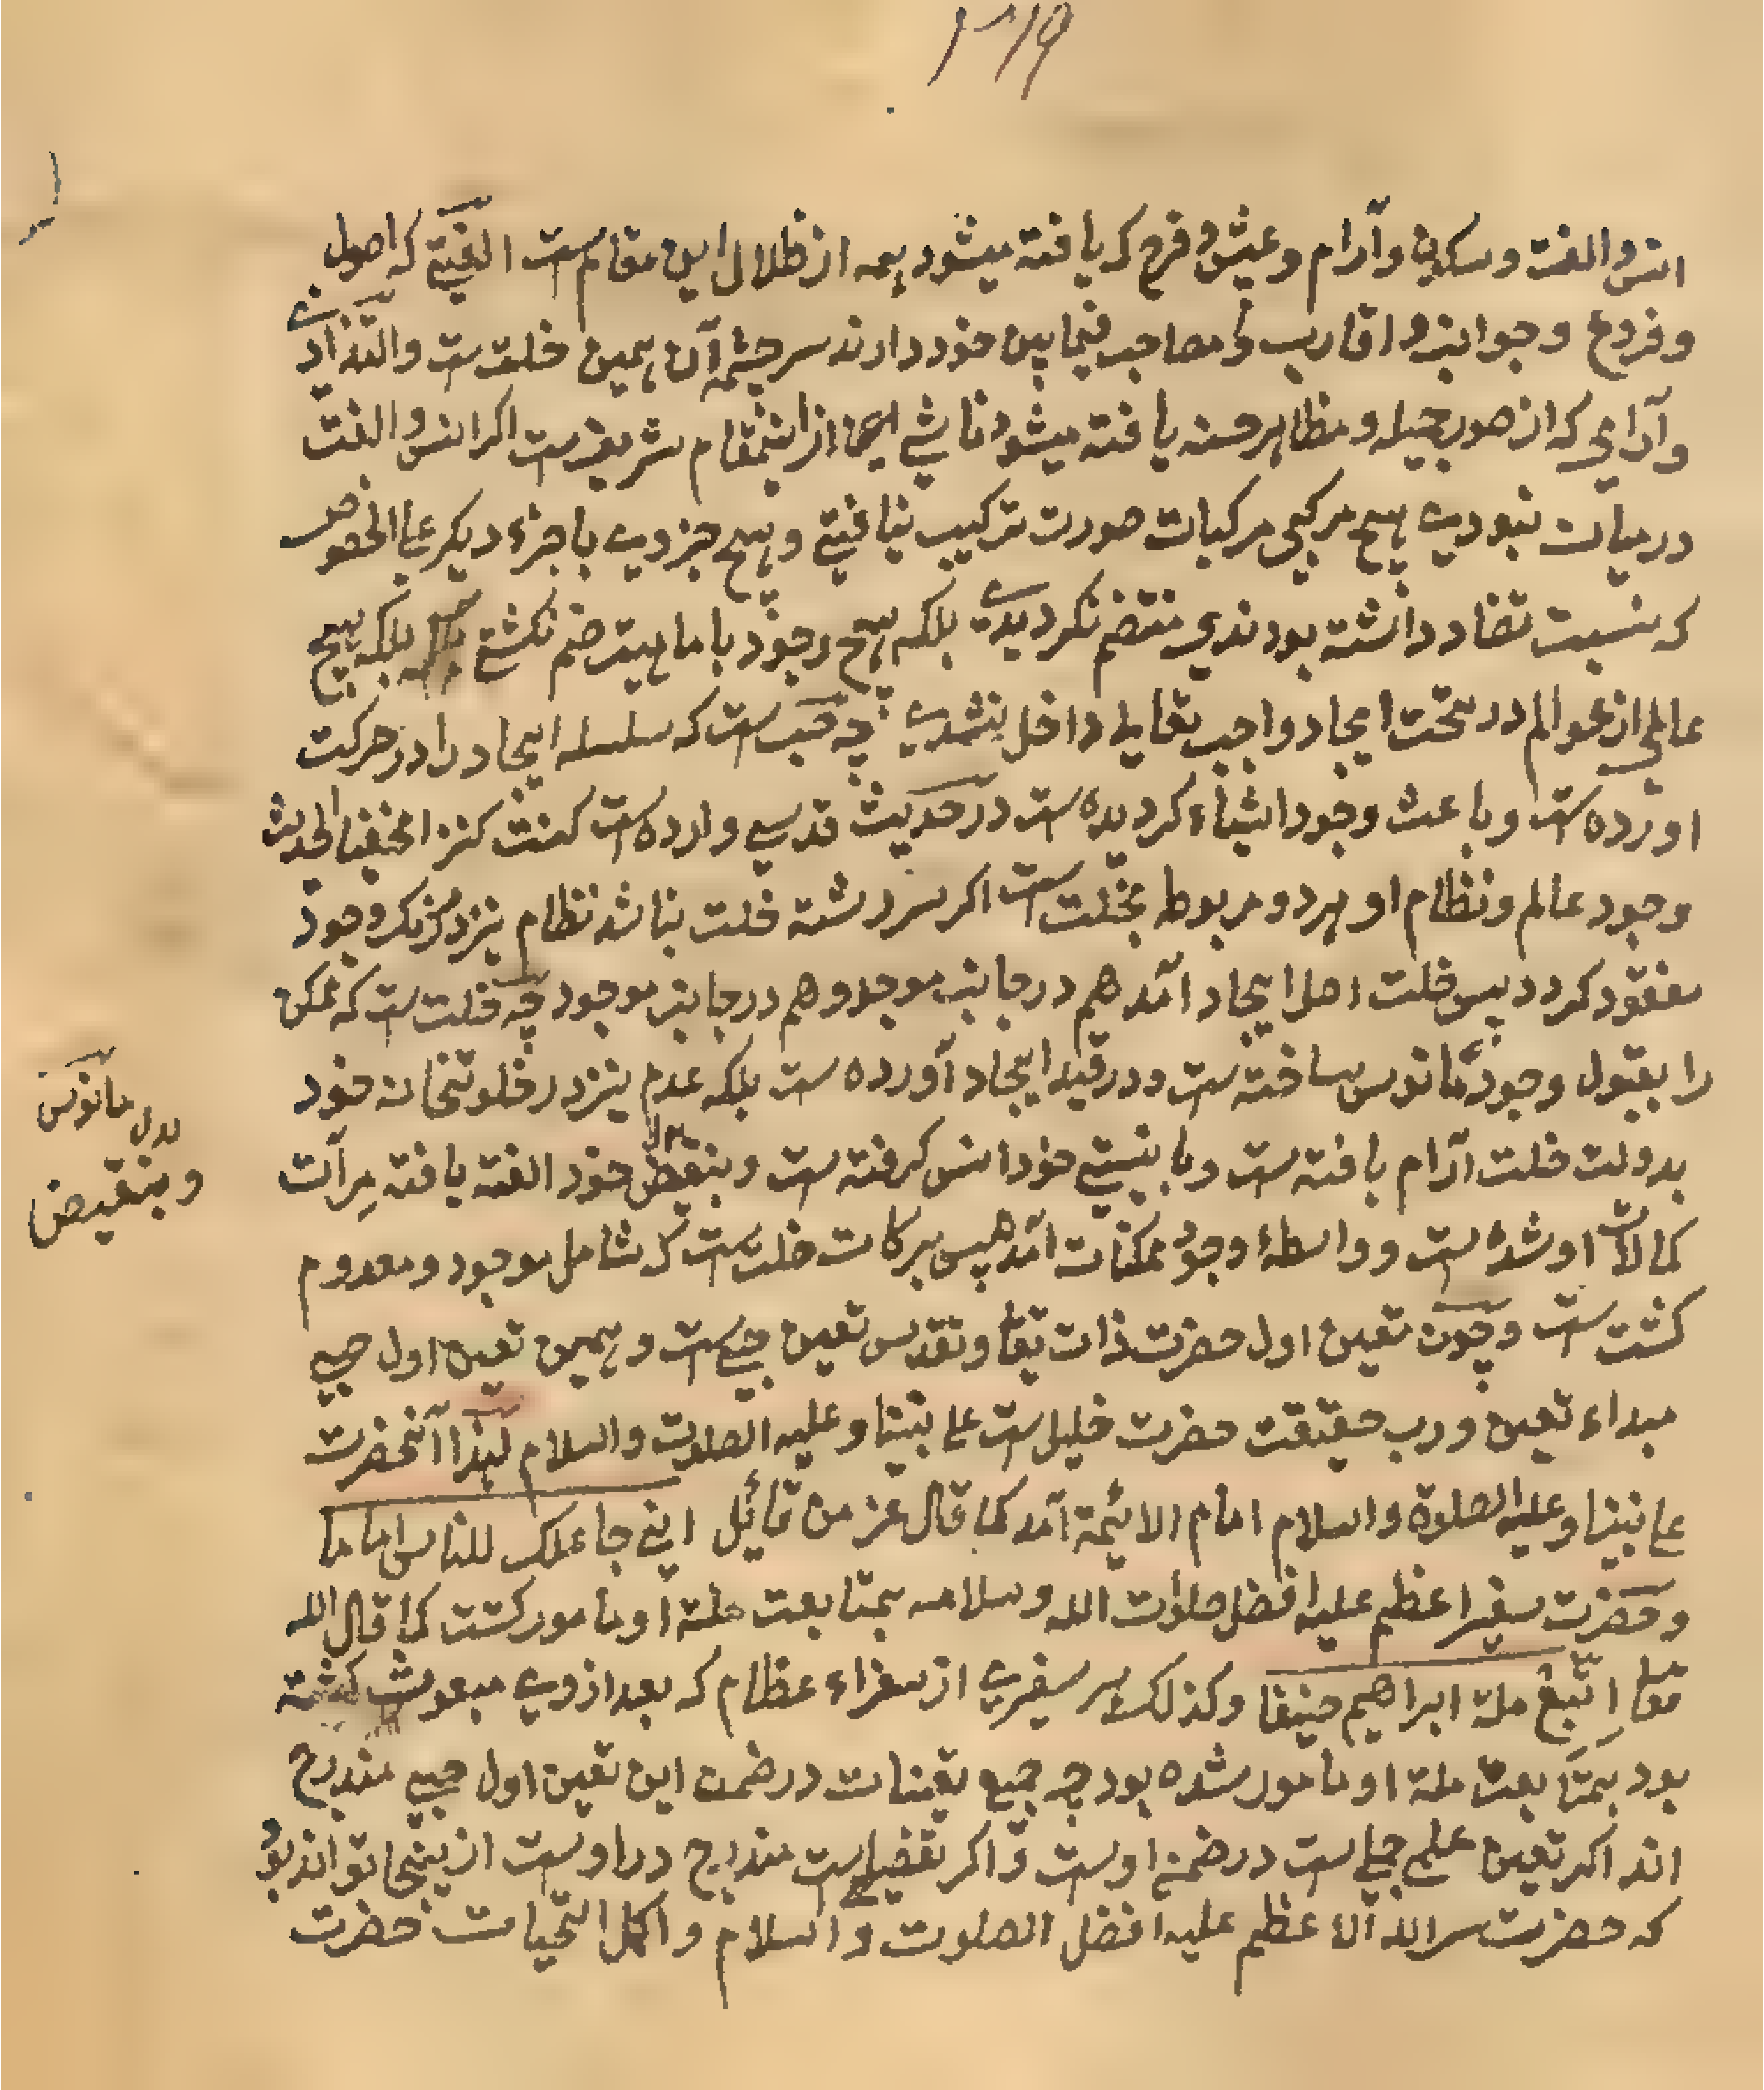 ۳۱۹
انس و الفت و سکون و آرام و عیش و فرح که یافته میشود همه از ظلال این مقام ست الفتی که اصول
و فروع و جوانب و اقارب و مصاحب فیمابین خود دارند سرچشمه آن همین خلت ست و التذاذی
و آرامی که از صور جمیله و مظاهر حسنه یافته میشود ناشی از اینمقام شریف ست اکر انس و الفت
درمیان نبودی هیچ مرکبی مرکبات صورت ترکیب نیافتی و هیچ جزوی با جزء دیکر علی الخصوص
که نسبت تضاد داشته بودندی منتضم نکردیدی بلکه هیچ وجود با ماهیت ضم نکشتی بلکه هیچ
عالمی از عوالم در تحت ایجاد واجب تعالی داخل نشدی چه حب ست که سلسله ایجاد را در حرکت
اورده ست و باعث وجود اشیاء کردیده ست در حدیث قدسی وارد ست کنت کنزا مخفیا الحدیث
وجود عالم و نظام او هردو مربوط بخلت ست اکر سررشته خلت نباشد نظام نیز در رنک وجود
مفقود کردد پس خلت اصل ایجاد آمد هم در جانب موجد و هم در جانب موجود چه خلت ست که ممکن
را بقبول وجود مانوس ساخته ست و در قید ایجاد آورده ست بلکه عدم نیز در خلوتخانه خود
بدولت خلت آرام یافته ست و با نیستی خود انس کرفته ست و بنقیض خود الفته یافته مرآت
کمالات او شده ست و واسطه وجود ممکنات آمده پس برکات خلت ست که شامل موجود و معدوم
کشت ست و چون تعین اول حضرت ذات تعالی و تقدس تعین حبی ست و همین تعین اول حبی
مبداء تعین و رب حقیقت حضرت خلیل ست علی نبینا و علیه الصلوت والسلام لهذا آنحضرت
علی نبینا و علیه الصلوة والسلام امام الائمة آمد کما قال عز من قائل انی جاعلک للناس اماما
و حضرت سفیر اعظم علیه افضل صلوات الله و سلامه بمتابعت ملة او مامور کشت کما قال الله
تعالی اتبع ملة ابراهیم حنیفا و کذلک هر سفیری از سفراء عظام که بعد از وی مبعوث کشته
بود بمتابعت ملة او مامور شده بود چه جمیع تعینات در ضمن این تعین اول حبی مندرج
اند اکر تعین علمی جملی ست در ضمن اوست و اکر تفصیلی ست مندرج در اوست از ینجا تواند بود
که حضرت سر الله الاعظم علیه افضل الصلوت والسلام و اکمل التحیات حضرت
بدل مانوس
وبنقیض